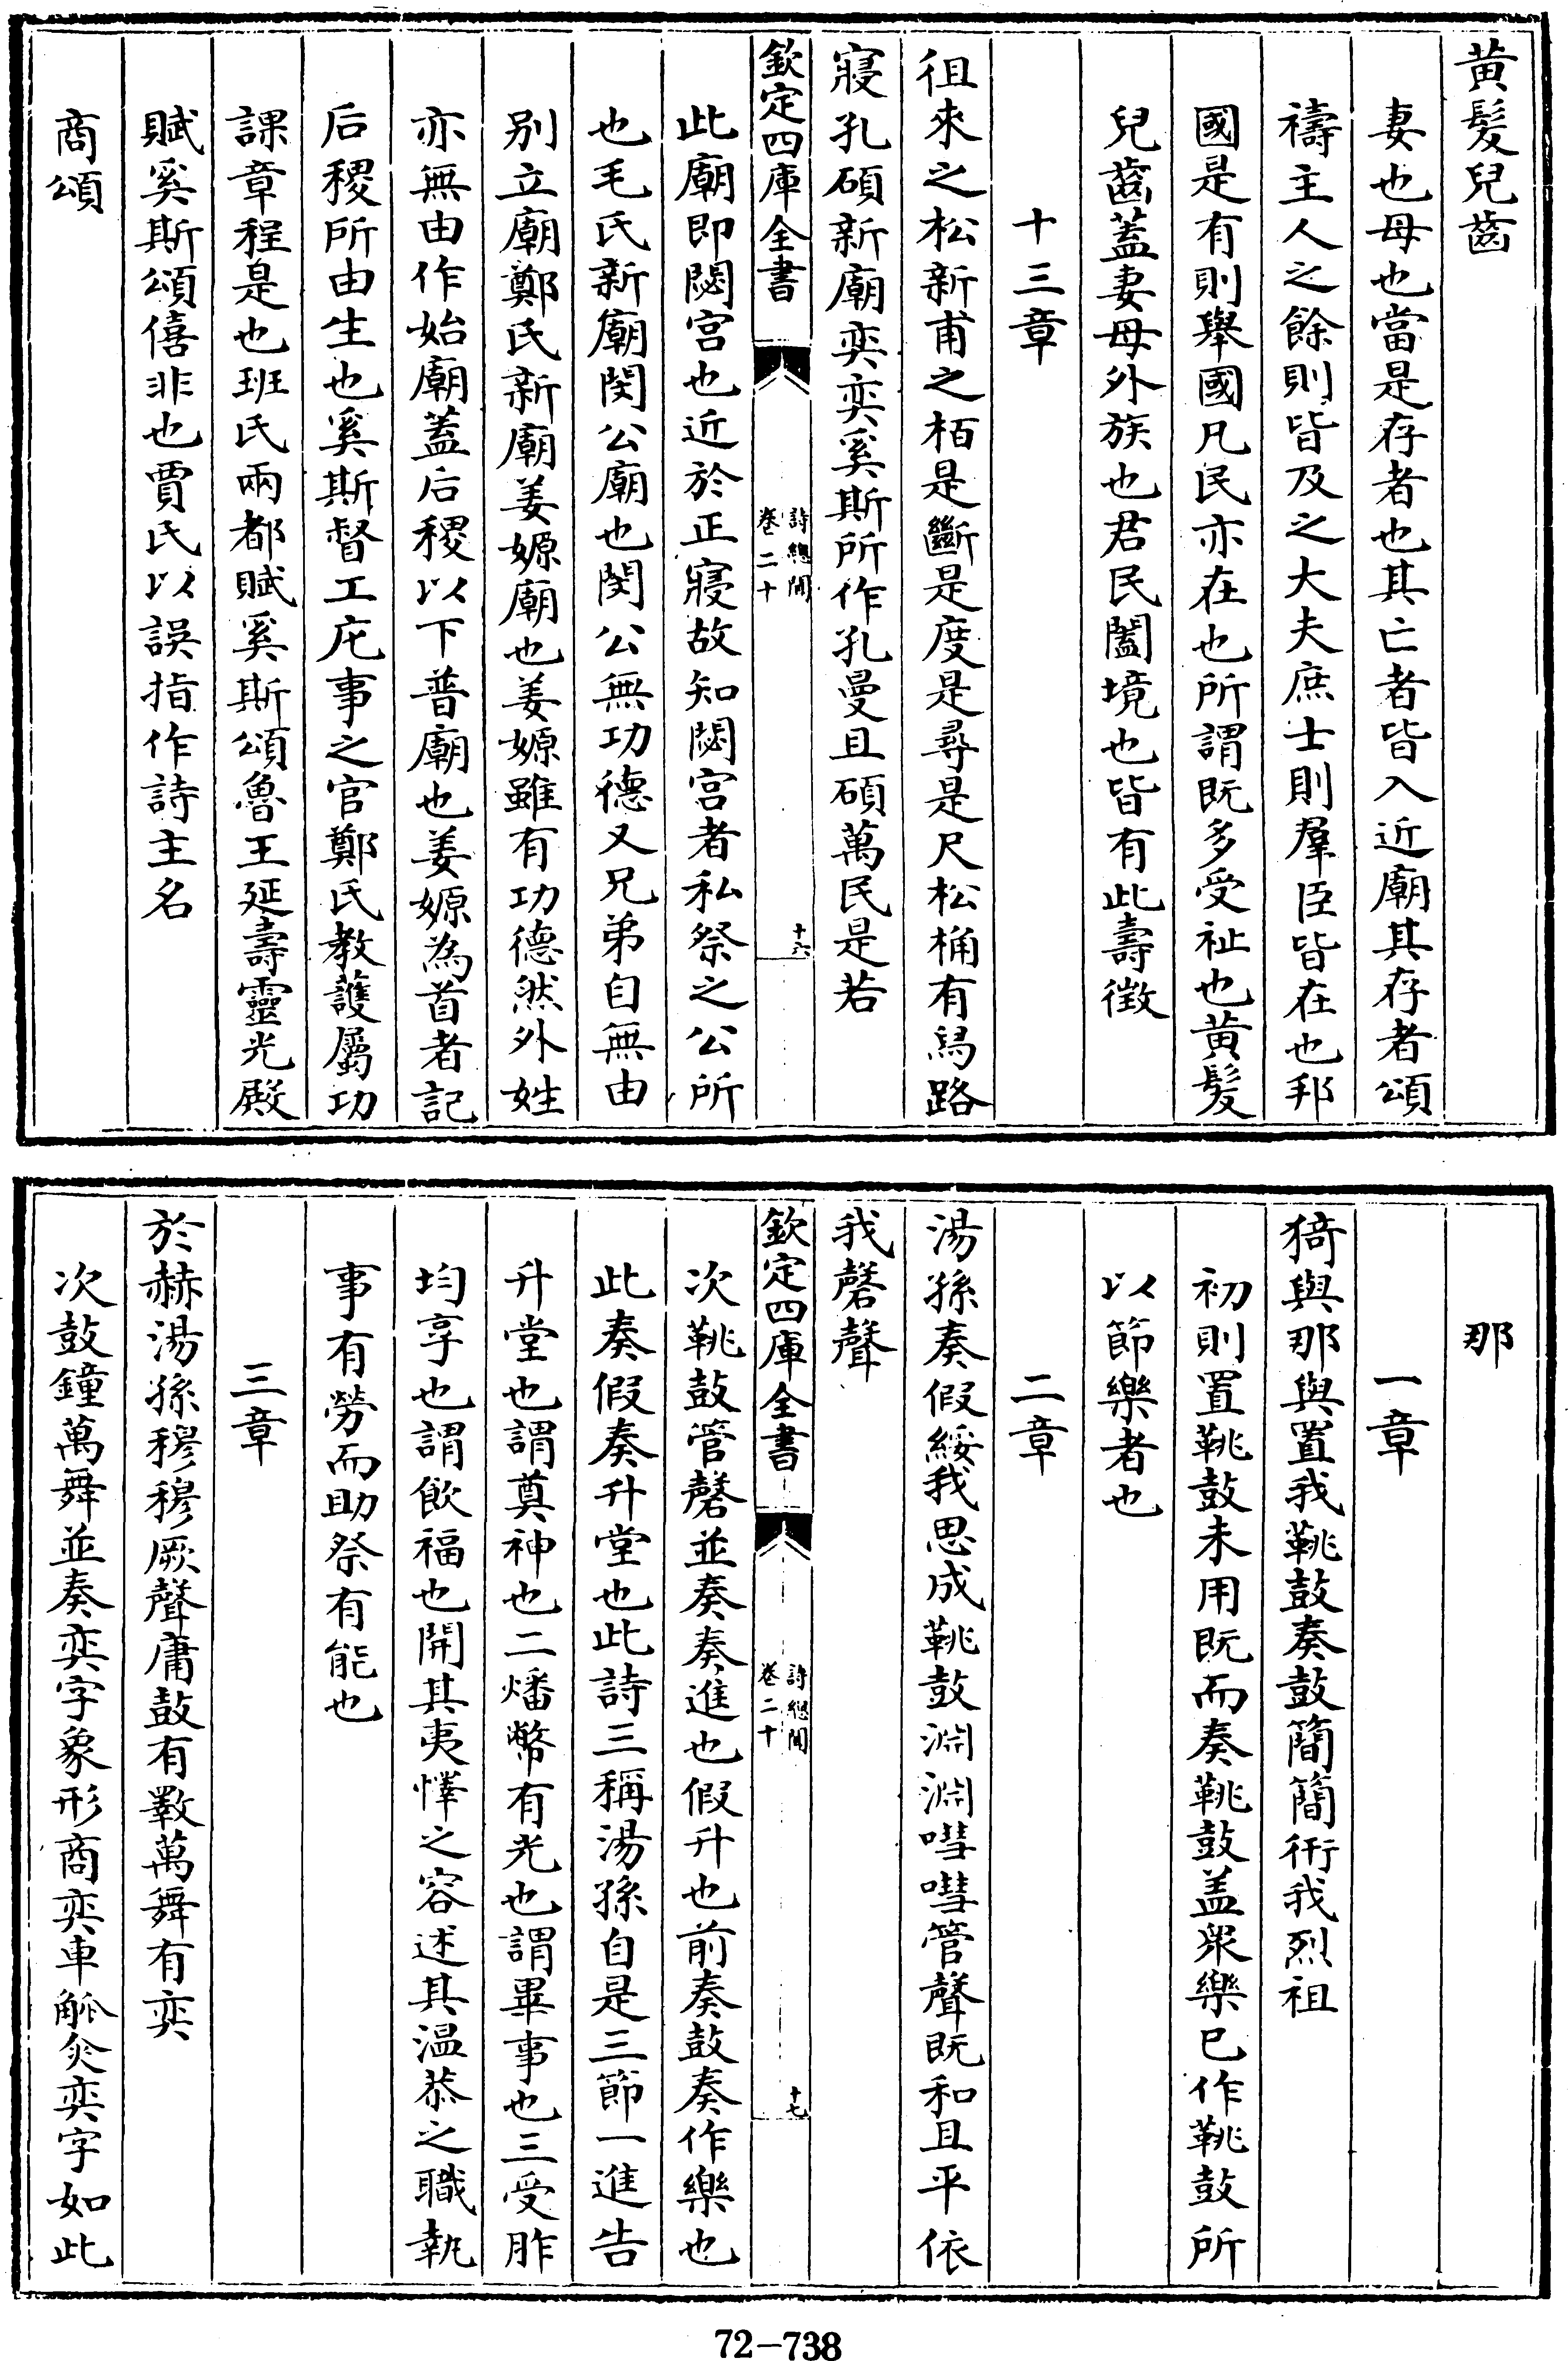 黄髮兒齒
妻也母也當是存者也其亡者皆入近廟其存者頌
禱主人之餘則皆及之大夫庶士則羣臣皆在也邦
國是有則舉國凡民亦在也所謂既多受祉也黄髮
兒齒蓋妻母外族也君民闔境也皆有此壽徵
十三章
徂來之松新甫之栢是斷是度是尋是尺松桷有舄路
寢孔碩新廟奕奕奚斯所作孔曼且碩萬民是若
欽定四庫全書
詩總聞
卷二十
十六
此廟即閟宫也近於正寢故知閟宫者私祭之公所
也毛氏新廟閔公廟也閔公無功德又兄弟自無由
别立廟鄭氏新廟姜嫄廟也姜嫄雖有功德然外姓
亦無由作始廟蓋后稷以下普廟也姜嫄為首者記
后稷所由生也奚斯督工庀事之官鄭氏教護屬功
課章程是也班氏兩都賦奚斯頌魯王延壽靈光殿
賦奚斯頌僖非也賈氏以誤指作詩主名
商頌
那
一章
猗與那與置我鞉鼓奏鼓簡簡衎我烈祖
初則置鞉鼓未用既而奏鞉鼓盖衆樂已作鞉鼓所
以節樂者也
二章
湯孫奏假綏我思成鞉鼓淵淵嘒嘒管聲既和且平依
我磬聲
欽定四庫全書
詩總聞
卷二十
十七
次鞉鼓管磬並奏奏進也假升也前奏鼓奏作樂也
此奏假奏升堂也此詩三稱湯孫自是三節一進告
升堂也謂奠神也二燔幣有光也謂畢事也三受胙
均享也謂飲福也開其夷懌之容述其温恭之職執
事有勞而助祭有能也
三章
於赫湯孫穆穆厥聲庸鼓有斁萬舞有奕
次鼓鐘萬舞並奏奕字象形商奕車觚奕字如此